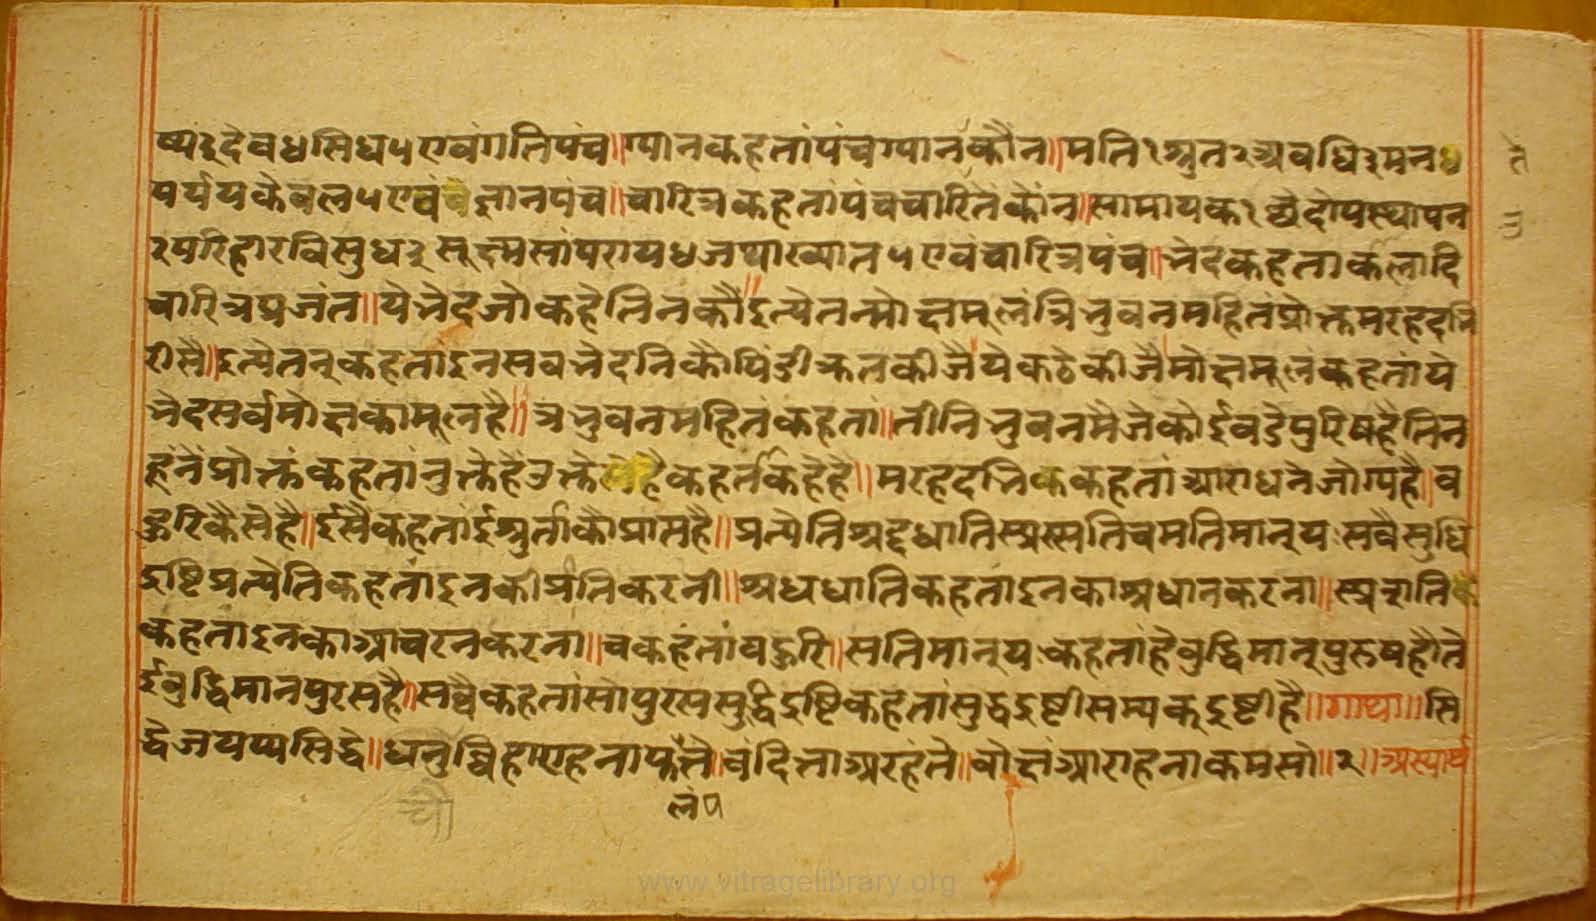 ष्य३देव४सिध५एवंगतिपंच॥ग्यानकहतांपंचग्यानकौंन॥मति१श्रुत२अवधि३मन४
पर्ययकेवल५एवंज्ञानपंच॥चारित्रकहतांपंचचारितकोंन॥सामायक१छेदोपस्थापन
२परिहारविसुध३सूक्ष्मसांपराय४जथाख्यात५एवंचारित्रपंच॥भेदकहताकलादि
चारित्रप्रजंत॥येभेदजोकहेतिनकौ॥इत्येतन्मोक्षमूलंत्रिभुवनमहितंप्रोक्तमरहदभि
रीसै॥इत्येतत्कहतांइनसबभेदनिकौपिंडीक्रतकीजैयेकठेकीजैमोक्षमूलंकहतांये
भेदसर्वमोक्षकामूलहै॥त्रभुवनमहितंकहतां॥तीनिभुवनमैजेकोईबडेपुरिषहैतिन
हूंनैप्रोक्तंकहतांनुक्तेहैउक्तेहैकहतकहेहै॥मरहदभिककहतांआराधनेजोग्यहै॥ब
हुरिकैसेहै॥ईसैकहतांईश्रुताकौप्राप्तहै॥प्रत्येतिश्रद्दधातिस्प्रस्सतिचमतिमान्यःसवैसुधि
द्रष्टिप्रत्येतिकहतांइनकीप्रतिकरनी॥श्रधधातिकहतांइनकाश्रधानकरना॥स्प्रशति
कहतांइनकाआचरनकरना॥चकहंतांबहुरि॥सतिमान्यःकहतांहैबुद्धिमान्पुरुषहौते
ईबुद्धिमानपुरसहै॥सवैकहतांसोपुरससुद्धिद्रष्टिकहतांसुद्धद्रष्टीसम्यक्द्रष्टीहै॥गाथा॥सि
द्धेजयप्पसिद्धे॥चउव्विहाराहनाफलंपत्ते॥वंदित्ताअरहंते॥वोछंआराहनाकमसो॥२॥अस्यार्थ
लंप
चौ